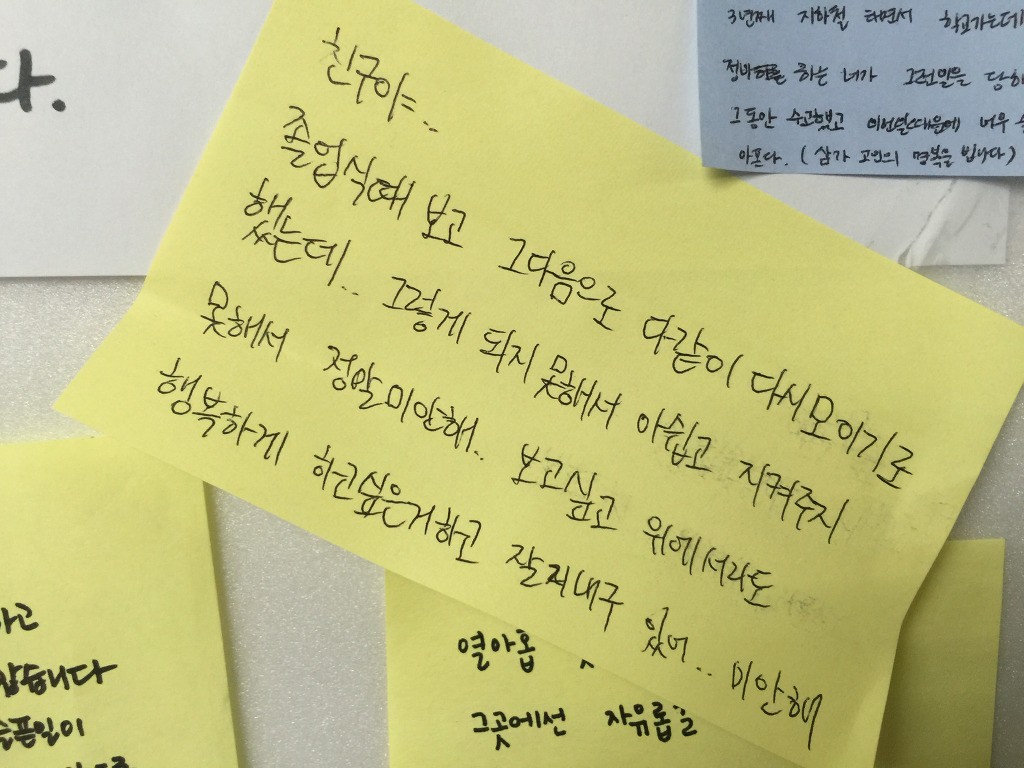 다.
3년째 지하철 타면서 학교가는데
정비를 하는 너가 그런일을 당해
그동안 수고했고 이런일때문에 너무
아프다. (삼가 고인의 명복을 빕니다)
친구야..
졸업식때 보고 그다음으로 다같이 다시모이기로
했는데.. 그렇게 되지 못해서 아쉽고 지켜주지
못해서 정말미안해.. 보고싶고 위에서라도
행복하게 하고싶은거하고 잘지내구 있어.. 미안해
하고
같습니다
슬픈일이
열아홉
그곳에선 자유롭길